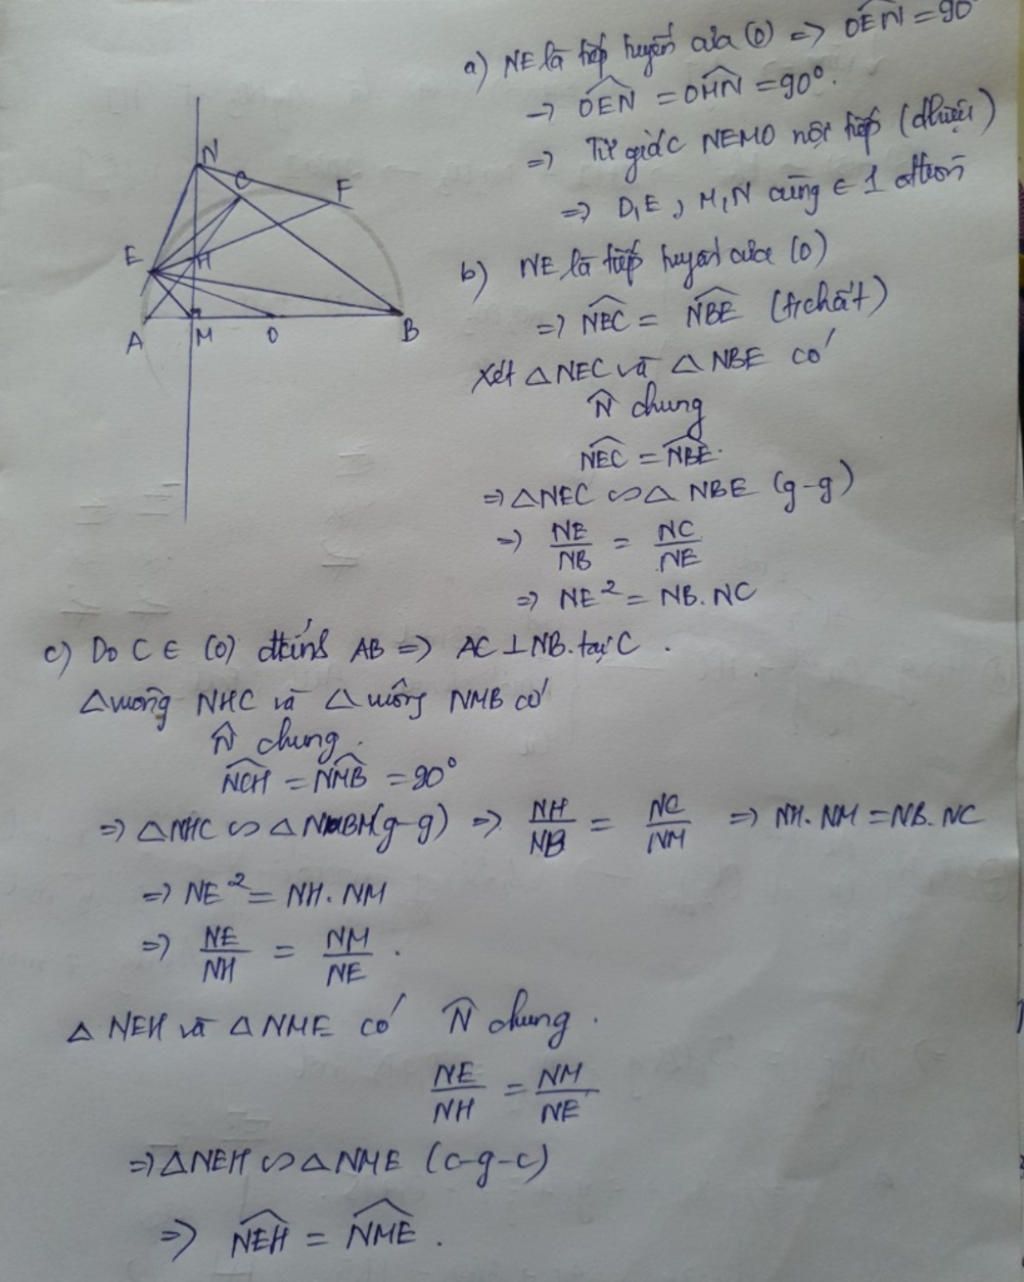 N
C
F
E
H
A
M
O
B
a) NE là tiếp tuyến của (O) => OEN = 90
-> OEN = OMN = 90°.
=> Tứ giác NEMO nội tiếp (đhiệu)
=> O, E, M, N cùng ∈ 1 đtròn
b) NE là tiếp tuyến của (O)
=> NEC = NBE (t/chất)
Xét △NEC và △NBE có
N̂ chung
NEC = NBE.
=> △NEC ∽ △NBE (g-g)
=> NE/NB = NC/NE
=> NE² = NB.NC
c) Do C ∈ (O) đkính AB => AC ⊥ NB tại C.
△vuông NHC và △vuông NMB có
N̂ chung.
NCH = NMB = 90°
=> △NHC ∽ △NBM (g-g) => NH/NB = NC/NM => NH.NM = NB.NC
=> NE² = NH.NM
=> NE/NH = NM/NE.
△NEH và △NME có N̂ chung.
NE/NH = NM/NE
=> △NEH ∽ △NME (c-g-c)
=> NEH = NME.